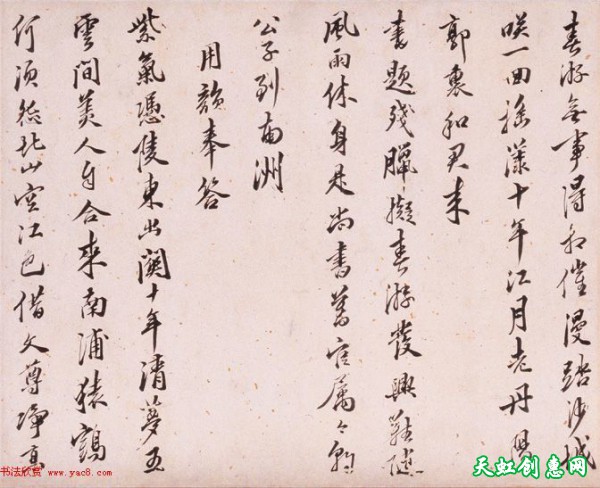 春游無事得相催漫踏沙城
咲一回摇漾十年江月老丹陽
郭裏和君来
書題殘臘擬春游發興難
風雨休身是尚書舊官屬々郎
公子到南洲
用韻奉答
紫氣憑陵東出關十年清夢五
雲間美人自合来南浦猿鶴
何須怨北山空江色借文尊淨
书法欣赏 www.yac8.com
天虹创惠网